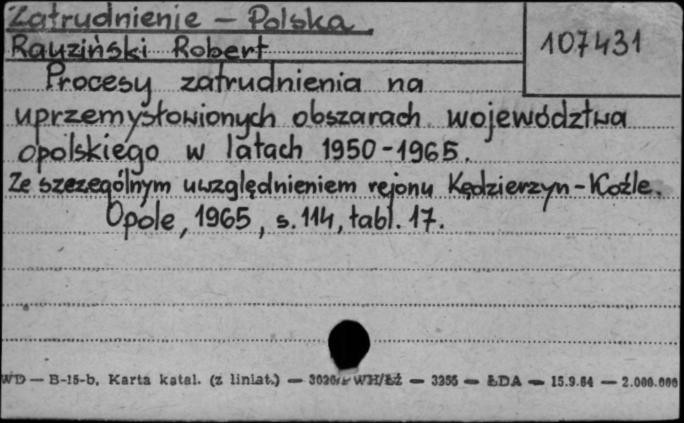 Zatrudnienie - Polska.
107431
Rauziński Robert
Procesy zatrudnienia na
uprzemysłowionych obszarach województwa
opolskiego w latach 1950-1965.
Ze szczególnym uwzględnieniem rejonu Kędzierzyn-Koźle.
Opole, 1965, s. 114, tabl. 17.
WD — B-15-b. Karta katal. (z liniat.) — WH/ŁŻ — 3255 — ŁDA — 15.9.64 — 2.000.000